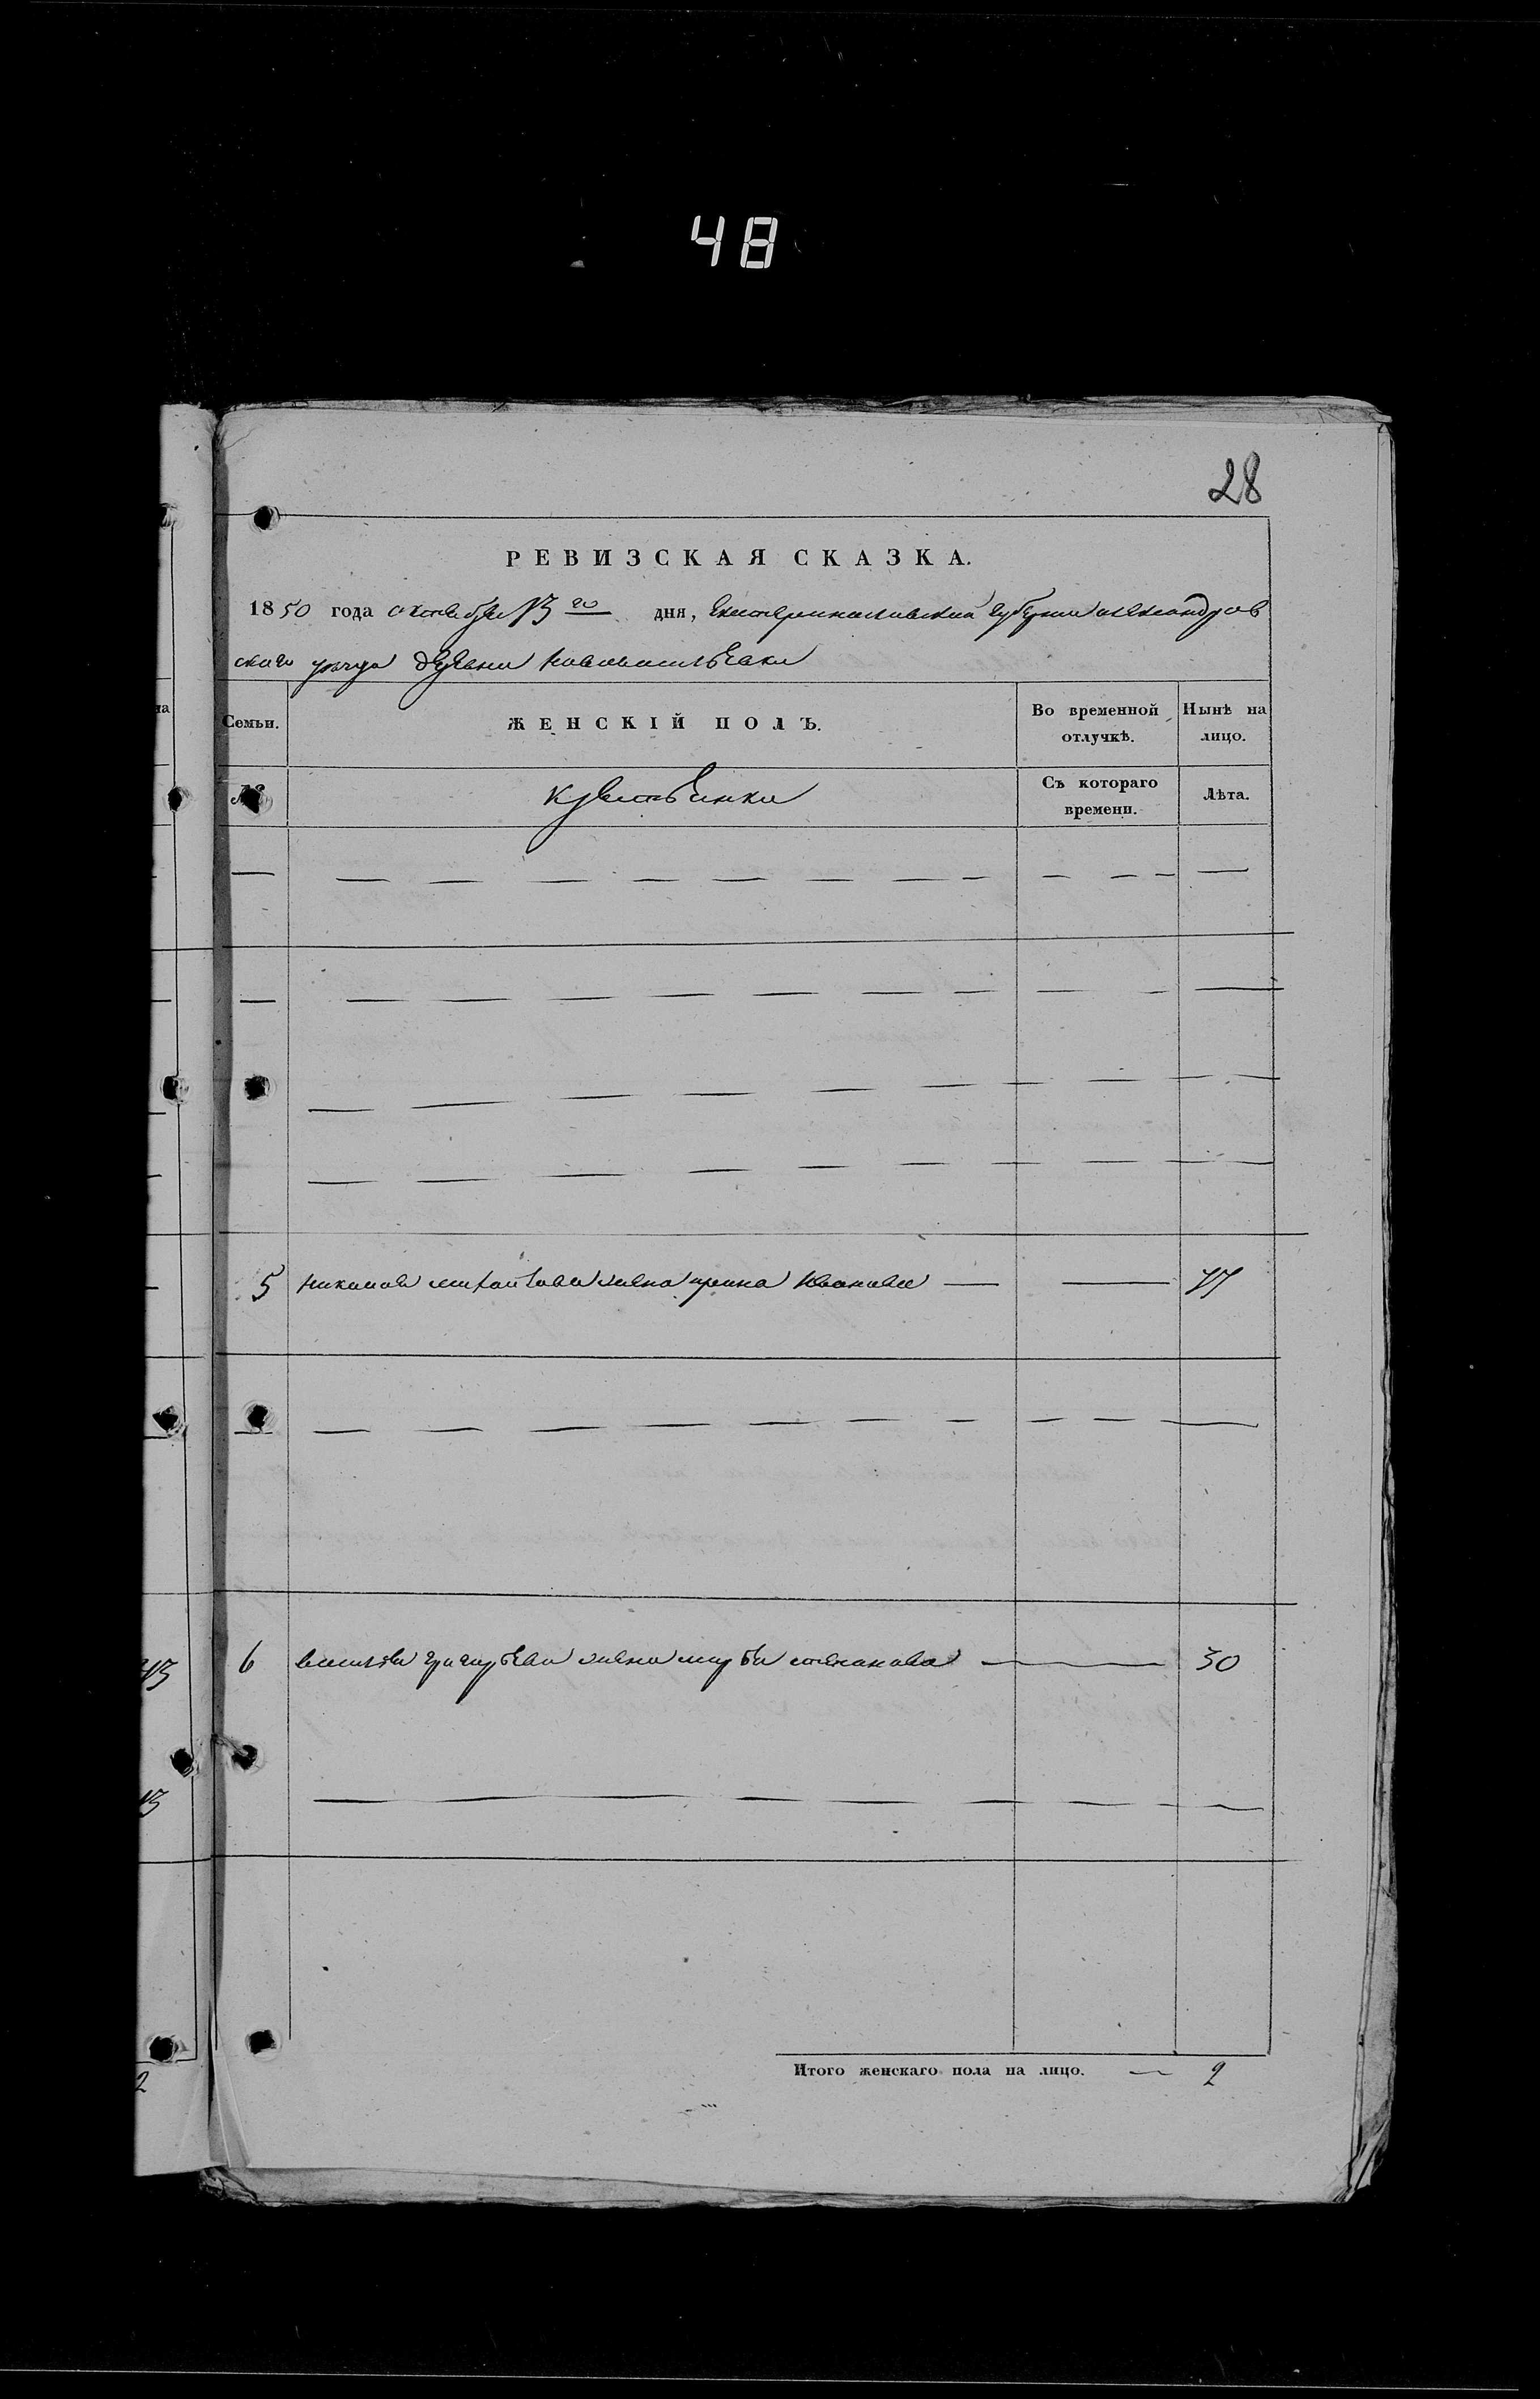 48
28
РЕВИЗСКАЯ СКАЗКА.
1850 года октября 13го дня, Екатеринославской губернии александров
скаго уезда деревни Нововасильевки
Семьи. ЖЕНСКІЙ ПОЛЪ. Во временной отлучкѣ. Нынѣ на лицо.
№ Крестьянки Съ котораго времени. Лѣта.
5 Николая михайлова жена ирина Иванова
6 василия григорьева жена марья степанова 30
Итого женскаго пола на лицо. — 2